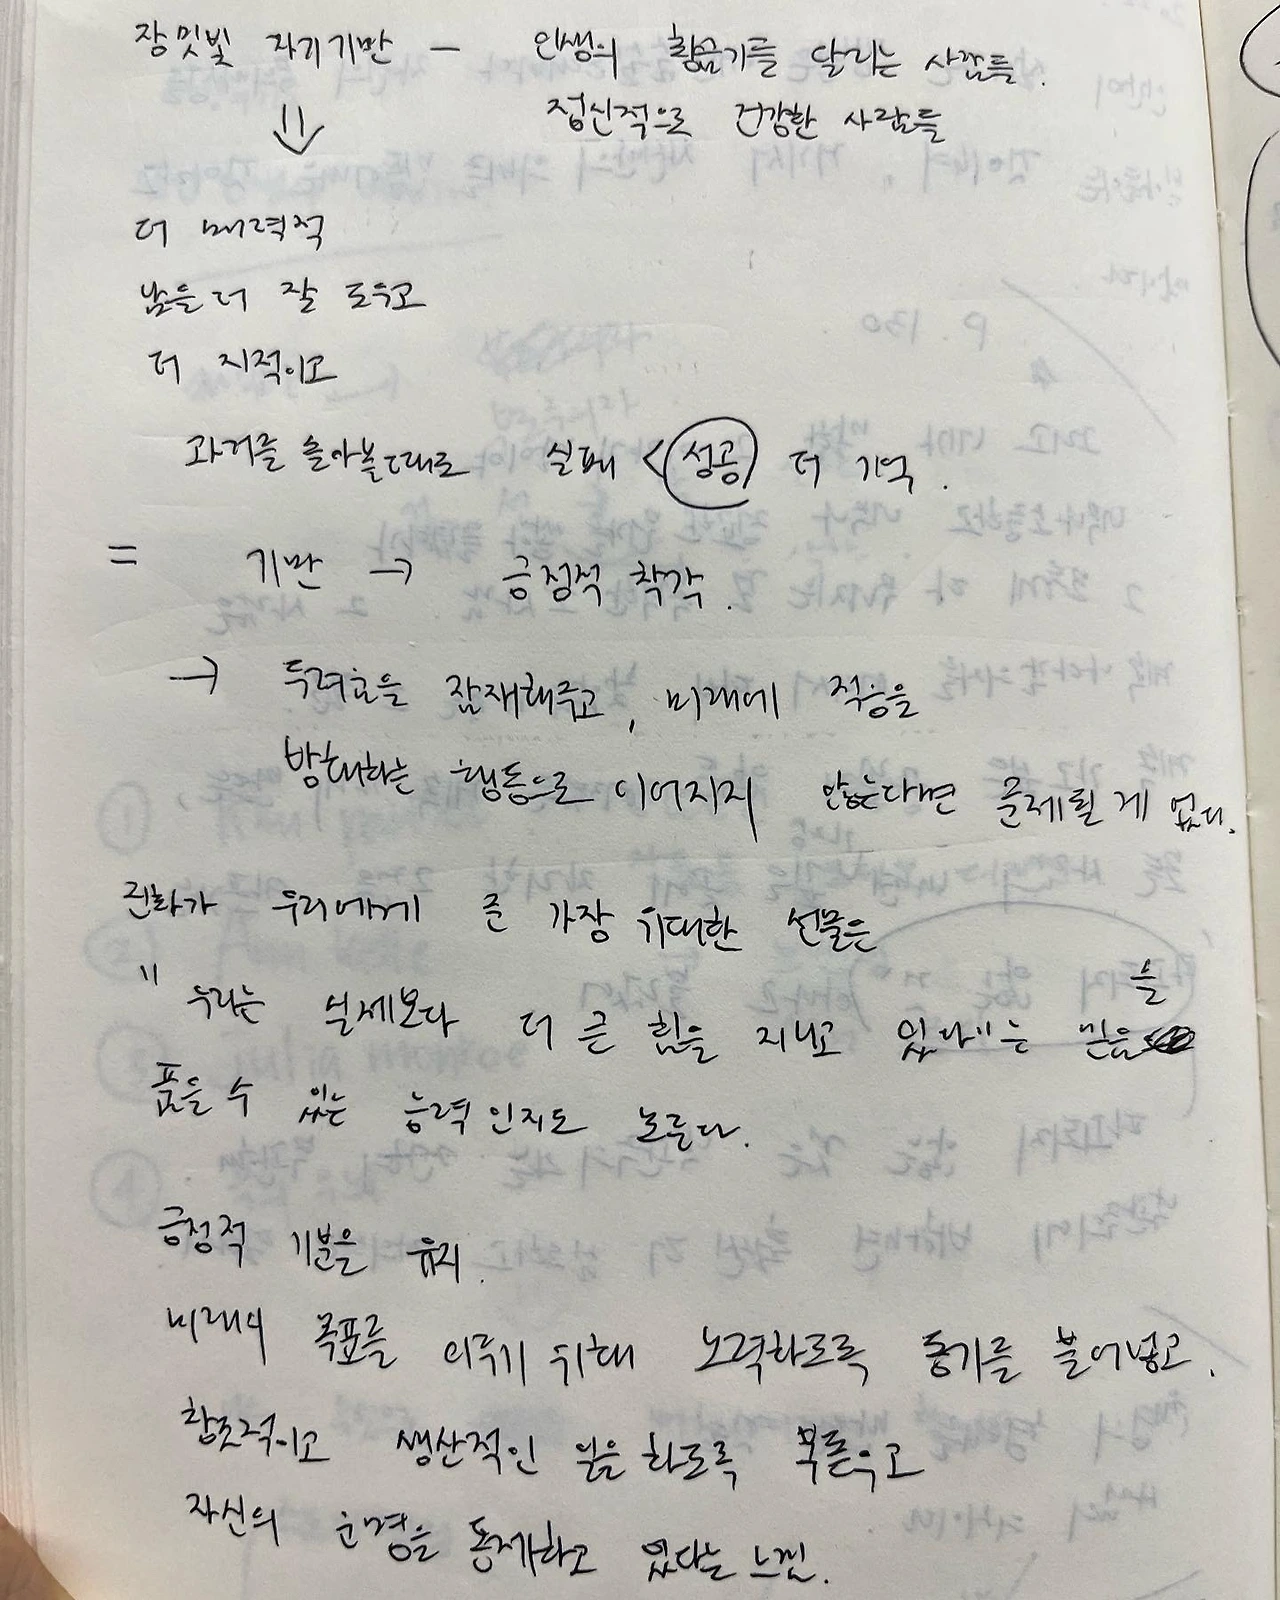 장밋빛 자기기만 - 인생의 황금기를 달리는 사람들.
정신적으로 건강한 사람들
⇓
더 매력적
남을 더 잘 도우고
더 지적이고
과거를 돌아볼때로 실패 < 성공 더 기억.
= 기만 → 긍정적 착각.
→ 두려움을 잠재해주고, 미래에 적응을
방해하는 행동으로 이어지지 않는다면 문제될 게 없다.
진화가 우리에게 준 가장 위대한 선물은
"우리는 실제보다 더 큰 힘을 지니고 있다"는 믿음을
품을 수 있는 능력인지도 모른다.
긍정적 기분을 유지.
미래의 목표를 이루기 위해 노력하도록 동기를 불어넣고.
창조적이고 생산적인 일을 하도록 북돋우고
자신의 운명을 통제하고 있다는 느낌.